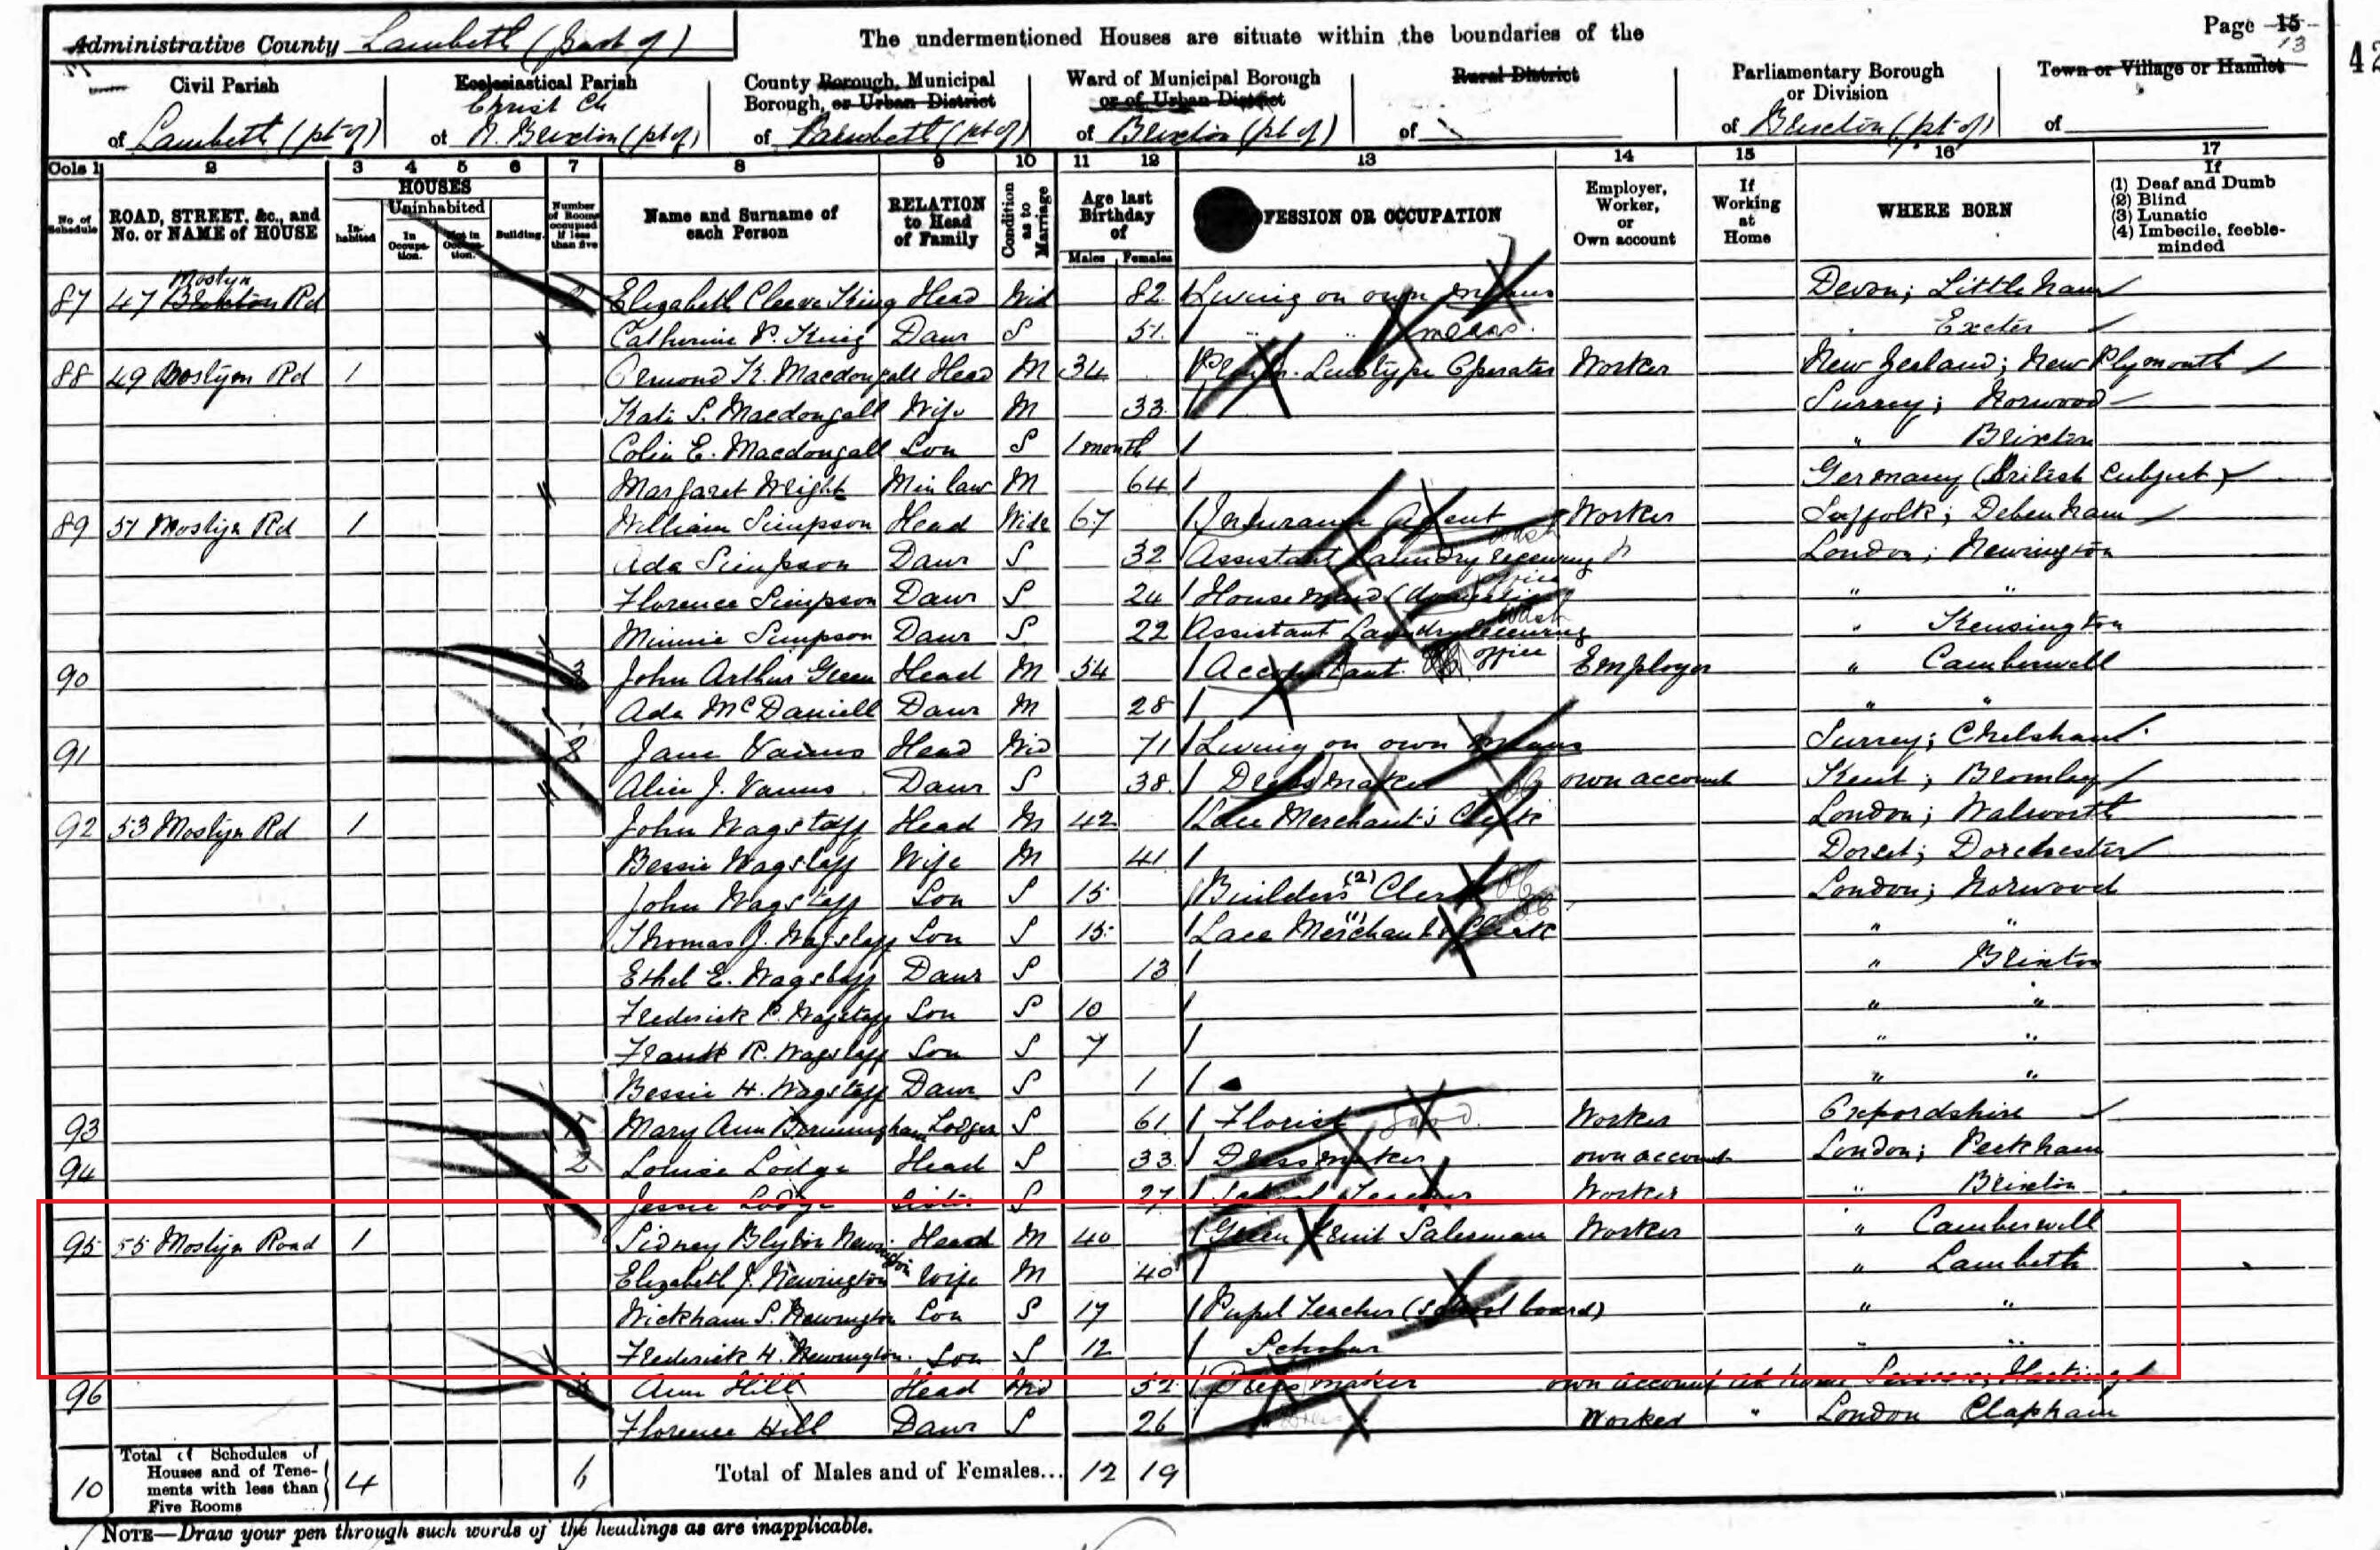 Page 15
13
42
Administrative County Lambeth (part of)
The undermentioned Houses are situate within the boundaries of the
Civil Parish
of Lambeth (pt of)
Ecclesiastical Parish
Christ Ch
of N. Brixton (pt of)
County Borough, Municipal
Borough, or Urban District
of Lambeth (pt of)
Ward of Municipal Borough
or of Urban District
of Brixton (pt of)
Rural District
of
Parliamentary Borough
or Division
of Brixton (pt of)
Town or Village or Hamlet
of
Cols 1 2 3 4 5 6 7 8 9 10 11 12 13 14 15 16 17
No. of Schedule
ROAD, STREET, &c., and
No. or NAME of HOUSE
HOUSES
In-habited
Uninhabited
In Occupa-tion.
Not in Occupa-tion.
Building.
Number of Rooms occupied if less than five
Name and Surname of
each Person
RELATION
to Head
of Family
Condition as to Marriage
Age last
Birthday
of
Males Females
FESSION OR OCCUPATION
Employer,
Worker,
or
Own account
If
Working
at
Home
WHERE BORN
If
(1) Deaf and Dumb
(2) Blind
(3) Lunatic
(4) Imbecile, feeble-
minded
Mostyn
87 47 Rd Elizabeth Cleeve King Head Wid 82 Living on own means Devon; Littleham
Catherine P. King Daur S 51 " " means " Exeter
88 49 Mostyn Rd 1 Ormond K. Macdougall Head M 34 Linotype Operator Worker New Zealand; New Plymouth
Kate S. Macdougall Wife M 33 Surrey; Norwood
Colin E. Macdougall Son S 1 month " Brixton
Margaret Wright M in law M 64 Germany (British Subject)
89 51 Mostyn Rd 1 William Simpson Head Widr 67 Insurance Agent Worker Suffolk; Debenham
Ada Simpson Daur S 32 Assistant Laundry receiving office London; Newington
Florence Simpson Daur S 24 Housemaid (domestic) " "
Minnie Simpson Daur S 22 Assistant Laundry receiving office " Kensington
90 3 John Arthur Green Head M 54 Accountant Employer " Camberwell
Ada McDaniell Daur M 28 " "
91 2 Jane Vanns Head Wid 71 Living on own means Surrey; Chelsham
Alice J. Vanns Daur S 38 Dressmaker own account Kent; Bromley
92 53 Mostyn Rd 1 John Wagstaff Head M 42 Lace Merchant's Clerk London; Walworth
Bessie Wagstaff Wife M 41 Dorset; Dorchester
John Wagstaff Son S 15 Builders (2) Clerk London; Norwood
Thomas J. Wagstaff Son S 15 Lace Merchants (1) Clerk " "
Ethel E. Wagstaff Daur S 13 " Brixton
Frederick C. Wagstaff Son S 10 " "
Frank R. Wagstaff Son S 7 " "
Bessie H. Wagstaff Daur S 1 " "
93 Mary Ann Birmingham Lodger S 61 Florist Worker Oxfordshire
94 2 Louise Lodge Head S 33 Dressmaker own account London; Peckham
Jessie Lodge Sister S 27 School Teacher Worker " Brixton
95 55 Mostyn Road 1 Sidney Blyton Newington Head M 40 Green Fruit Salesman Worker " Camberwell
Elizabeth J. Newington Wife M 40 " Lambeth
Wickham S. Newington Son S 17 Pupil Teacher (School board) " "
Frederick H. Newington Son S 12 Scholar " "
96 3 Ann Hill Head Wid 52 Dressmaker own account at home Sussex; Hastings
Florence Hill Daur S 26 Worker " London Clapham
10 Total of Schedules of
Houses and of Tene-
ments with less than
Five Rooms 4 6 Total of Males and of Females... 12 19
NOTE—Draw your pen through such words of the headings as are inapplicable.